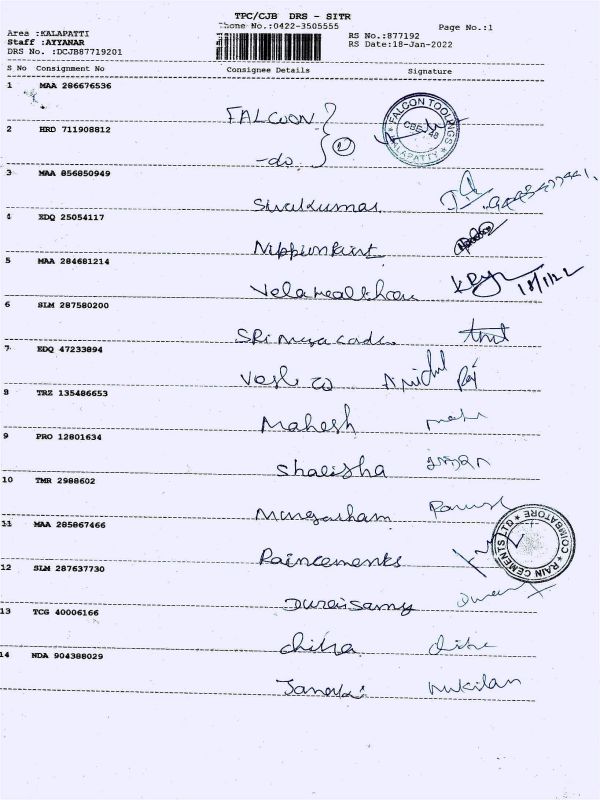 TPC/CJB DRS - SITR
Phone No.:0422-3505555
Page No.:1
Area :KALAPATTI
RS No.:877192
Staff :AIYANAR
RS Date:18-Jan-2022
DRS No. :DCJB87719201
S No Consignment No Consignee Details Signature
1 MAA 286676536
FALCON
FALCON TOOLINGS
CBE-48
KALAPATTI
2 HRD 711908812
-do
3 MAA 856850949
Sivakumar
4 EDQ 25054117
Nippon Paint
5 MAA 284681214
Vela Healthcare
18/1/22
6 SLM 287580200
7 EDQ 47233894
8 TRZ 135486653
Mahesh
9 PRO 12801634
Shalisha
10 TMR 2988602
11 MAA 285867466
Raincements
RAIN CEMENTS LTD
COIMBATORE
12 SLM 287637730
Duraisamy
13 TCG 40006166
Chitra
14 NDA 904388029
Janaki Mukilan